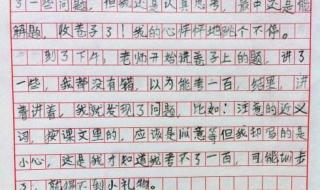 了一些问题，但我还是认真思考，最中又是能
解题，收卷子了！我的心怦怦地跳个不停。
到了下午，老师开始讲卷子上的题，讲了
一些，我都没有错，以为能考一百，结果，讲
着讲着，我就发现了问题，比如：注意的近义
词，按课文里的，应该是以意等但我却写的是
小心，这是我才知道我考不了一百，可能训步
了，就得不到小礼物。